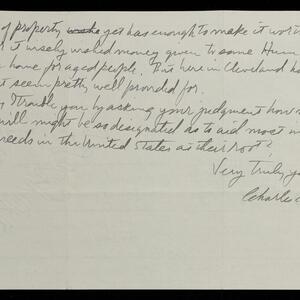 of property yet has enough to make it wort
it wisely willed money given to some Hum
home for aged people. But here in Cleveland ho
t seem pretty well provided for.
I trouble you by asking your judgment how m
will might be so designated as to aid most in
needs in the United States as their root?
Very truly yo
Charles